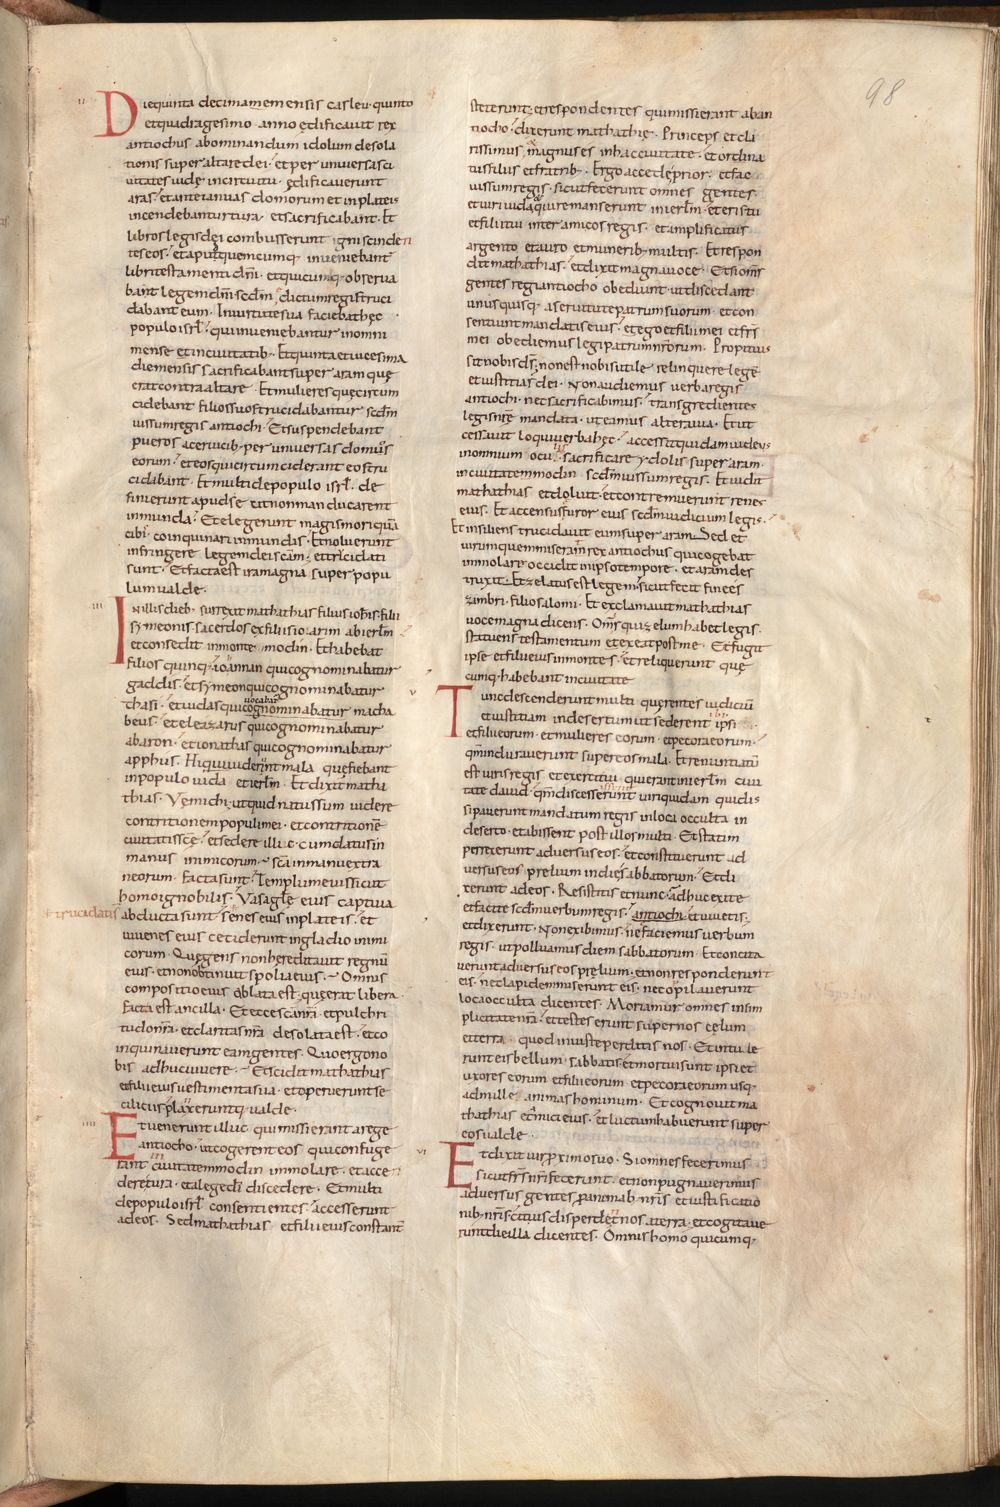 98
ii
Die quinta decima mensis casleu quinto
et quadragesimo anno ędificauit rex
antiochus abominandum idolum desola
tionis super altare dei · et per uniuersas ci
uitates iudę in circuitu ędificauerunt
aras · et ante ianuas domorum et in plateis
incendebantur tura · et sacrificabant · Et
libros legis dei combusserunt igni scinden
tes eos · et apud quemcumq · inueniebant
libri testamenti dñi · et quicumq · obserua
bant legem dñi · scdm dictum regis truci
dabant eum · In uirtute sua faciebat hęc
populo isrl · qui inueniebantur in omni
mense et in ciuitatib · Et quinta et uicesima
die mensis sacrificabant super aram quę
erat contra altare · Et mulieres quę circum
cidebant filios suos trucidabantur scdm
iussum regis antiochi · Et suspendebant
pueros a ceruicib · per uniuersas domus
eorum · et eos qui circumciderant eos tru
cidabant · Et multi de populo isrl · de
finierunt apud se ut non manducarent
inmunda · Et elegerunt magis mori quā
cibis coinquinari inmundis · Et noluerunt
infringere legem dei scām · et trucidati
sunt · Et facta est ira magna super popu
lum ualde ·
iii
In illis dieb · surrexit mathathias filius iohis · filii
symeonis · sacerdos ex filiis ioarim ab ierlm
et consedit in monte modin · Et habebat
filios quinq · ioannan qui cognominabatur
gaddis · et symeon qui cognominabatur
thasi · et iudas qui uocabatur cognominabatur macha
beus · et eleazarus qui cognominabatur
abaron · et ionathas qui cognominabatur
apphus · Hi uiderunt mala quę fiebant
in populo iuda et ierlm · Et dixit matha
thias · Vę mihi · ut quid natus sum uidere
contritionem populi mei · et contritionē
ciuitatis scę · et sedere illic · cum datus in
manus inimicorum · scā in manu extra
neorum facta sunt · Templum eius sicut
homo ignobilis · Vasa glę eius captiua
trucidati s
abducta sunt · senes eius in plateis · et
iuuenes eius ceciderunt in gladio inimi
corum · Quę gens non hereditauit regnū
eius · et non obtinuit spolia eius · Omnis
compositio eius ablata est · quę erat libera
facta est ancilla · Et ecce scā nrā · et pulchri
tudo nrā · et claritas nrā desolata est · et co
inquinauerunt ea in gentes · Quo ergo no
bis adhuc uiuere · Et scidit mathathias
et filii eius uestimenta sua · et operuerunt se
ciliciis · et planxerunt q ualde ·
iiii
Et uenerunt illuc qui missi erant a rege
antiocho · ut cogerent eos qui confuge
rant in ciuitatem modin immolare · et acce
dere tura · et a lege di discedere · Et multi
de populo isrl consentientes accesserunt
ad eos · Sed mathathias et filii eius constanť
steterunt · et respondentes qui missi erant ab an
tiocho · dixerunt mathathię · Princeps et cla
rissimus magnus es in hac ciuitate · et ornina
tus filiis et fratrib · Ergo accede prior · et fac
iussum regis · sicut fecerunt omnes gentes
et uiri iuda · et qui remanserunt in ierlm · et eris tu
et filii tui inter amicos regis · et amplificatus
argento et auro et munerib · multis · Et respon
dit mathathias · et dixit magna uoce · Et si oms
gentes regi antiocho obediunt · ut discedant
unusquisq · a seruitute patrum suorum · et con
sentiunt mandatis eius · et ego et filii mei et frs
mei obediemus legi patrum nrorum · Propitius
sit nobis ds · non est nobis utile relinquere legē
et iustitias dei · Non audiemus uerba regis
antiochi · nec sacrificabimus transgredientes
legis nrę mandata · ut eamus altera uia · Et ut
cessauit loqui uerba hęc · accessit quidam iudeus
in omnium oculis sacrificare ydolis super aram ·
in ciuitatem modin · scdm iussum regis · Et uidit
mathathias et doluit · et contremuerunt renes
eius · Et accensus furor eius scdm iudicium legis ·
Et insiliens trucidauit eum super aram · Sed et
uirum quem miserat rex antiochus qui cogebat
immolare occidit in ipso tempore · et aram des
truxit · Et zelatus est legem · sicut fecit finees
zambri · filio salomi · Et exclamauit mathathias
uoce magna dicens · Omis qui zelum habet legis ·
statuens testamentum et exeat post me · Et fugit
ipse et filii eius in montes · et reliquerunt quę
cumq · habebant in ciuitate
v
Tunc descenderunt multi quęrentes iudiciū
et iustitiam in desertum ut sederent ibi ipsi
et filii eorum · et mulieres eorum · et pecora eorum ·
qm̄ indurauerunt super eos mala · Et renuntiatū
est uiris regis · et exercitui qui erant in ierlm ciui
tate dauid · qm̄ discesserunt uiri quidam qui dis
sipauerunt mandatum regis in loca occulta in
deserto · et abissent post illos multi · Et statim
perrexerunt aduersus eos · et constituerunt ad
uersus eos prelium in die sabbatorum · Et di
xerunt ad eos · Resistitis et nunc · adhuc exite
et facite scdm uerbum regis · antiochi · et uiuetis ·
et dixerunt · Non exibimus · nec faciemus uerbum
regis · ut polluamus diem sabbatorum · Et concita
uerunt aduersus eos pręlium · et non responderunt
eis · nec lapidem miserunt eis · nec opilauerunt
loca occulta dicentes · Moriamur omnes in sim
plicitate nrā · et testes erunt super nos cęlum
et terra · quod iniuste perditis nos · Et intule
runt eis bellum · sabbatis et mortui sunt ipsi et
uxores eorum et filii eorum et pecora eorum usq ·
ad mille animas hominum · Et cognouit ma
thathias et amici eius · et luctum habuerunt super
eos ualde ·
vi
Et dixit uir proximo suo · Si omnes fecerimus
sicut frs nri fecerunt · et non pugnauerimus
aduersus gentes pro animab · nris et iustificatio
nib · nris citius disperdet nos a terra · et cogitaue
runt die illa dicentes · Omnis homo quicumq ·